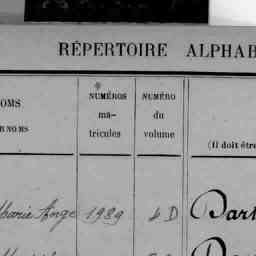 RÉPERTOIRE ALPHAB
OMS
RNOMS
NUMÉROS
ma-
tricules
NUMÉRO
du
volume
(Il doit êtr
Marie Ange 1989 4 D Bart